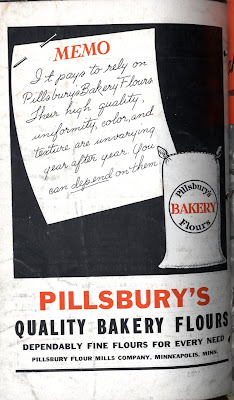 MEMO
It pays to rely on
Pillsbury's Bakery Flours
Their high quality,
uniformity, color, and
texture are unvarying
year after year. You
can depend on them
Pillsbury's
BAKERY
Flours
PILLSBURY'S
QUALITY BAKERY FLOURS
DEPENDABLY FINE FLOURS FOR EVERY NEED
PILLSBURY FLOUR MILLS COMPANY, MINNEAPOLIS, MINN.